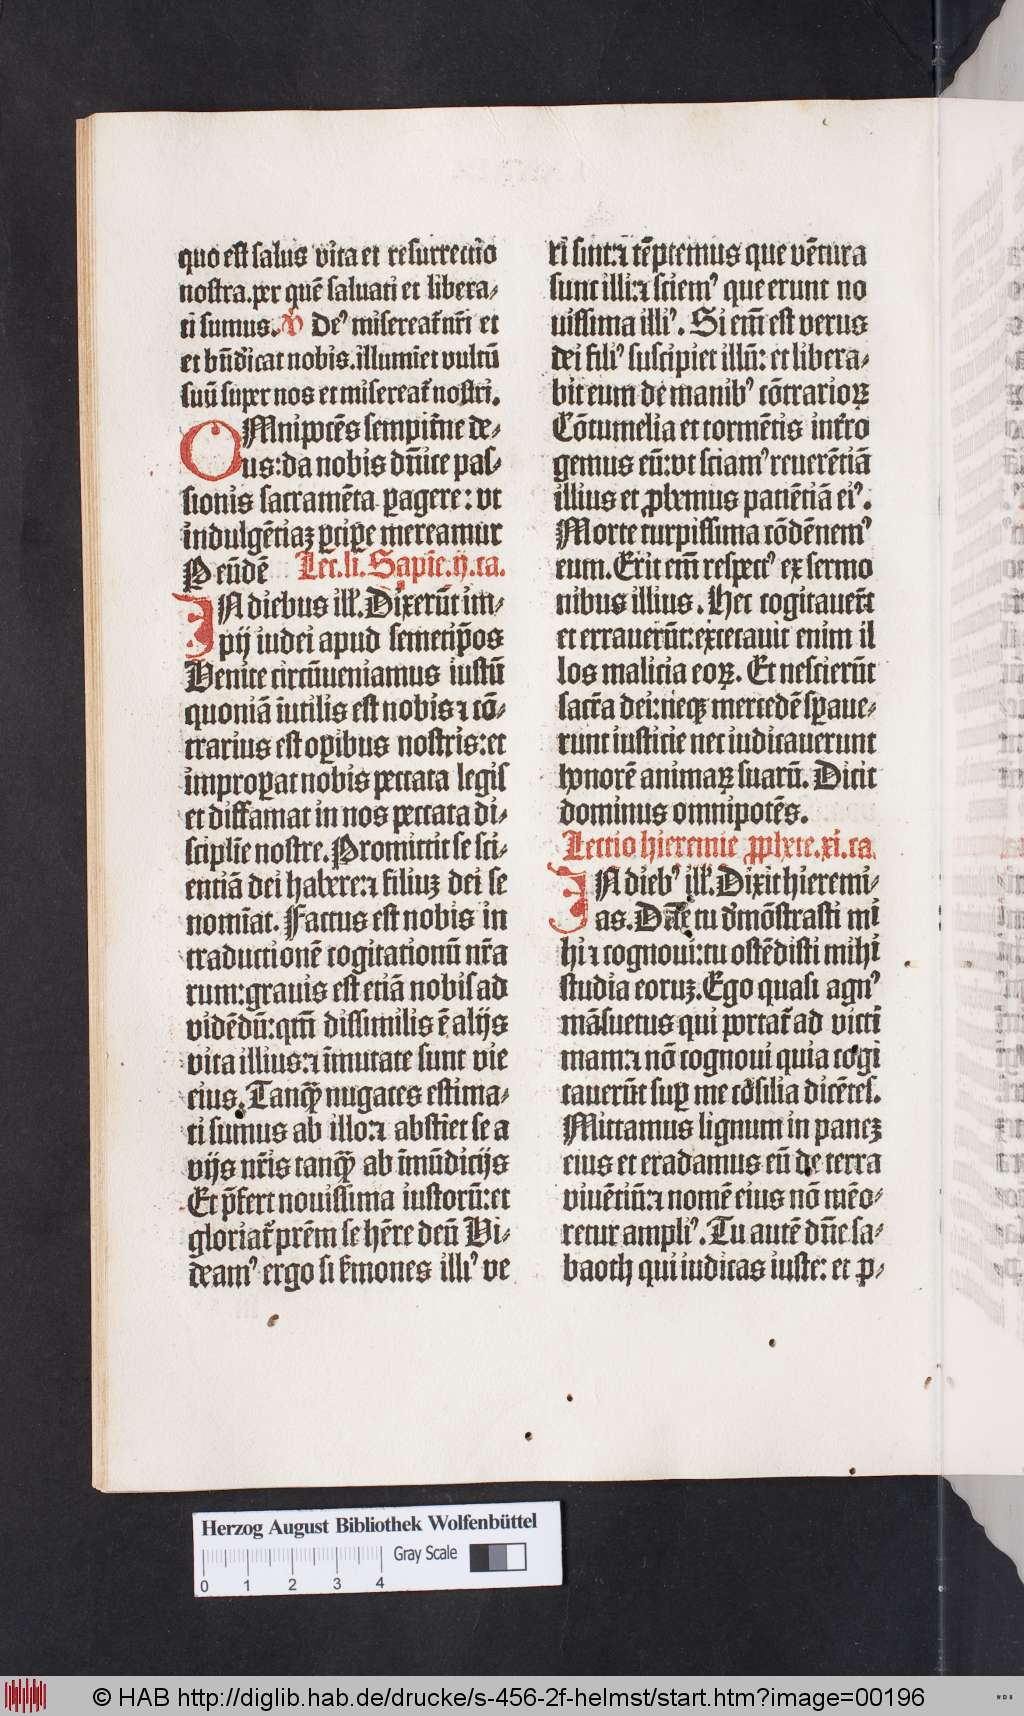 quo est salus vita et resurrectio
nostra.per quē saluati et libera-
ti sumus. V De⁹ misereat̄ nr̄i et
et bn̄dicat nobis.illumiet vultū
suū super nos et misereat̄ nostri.
OMnipotēs sempit̄ne de-
us:da nobis dn̄ice pas-
sionis sacramēta ꝑagere: vt
indulgētiaꝫ ꝑciꝑe mereamur
P eūdē Lec.li. Sapīe.ij.ca.
IN diebus ill̄. Dixerūt im-
pij iudei apud semetip̄os
Venite circūueniamus iustū
quoniā īutilis est nobis ⁊ cō-
trarius est oꝑibus nostris:et
improꝑat nobis peccata legis
et diffamat in nos peccata di-
sciplīe nostre. Promittit se sci-
entiā dei habere:⁊ filiuꝫ dei se
nomīat. Factus est nobis in
traductionē cogitationū nr̄a
rum:grauis est etiā nobis ad
vidēdū:qm̄ dissimilis ē alijs
vita illius:⁊ īmutate sunt vie
eius. Tanqꝫ nugaces estima-
ti sumus ab illo:⁊ abstiet se a
vijs nr̄is tanqꝫ ab īmūdicijs
Et p̄fert nouissima iustorū:et
gloriat̄ prēm se hēre deū Vi-
deam⁹ ergo si s̄mones illi⁹ ve
ri sint:⁊ tēptemus que vētura
sunt illi:⁊ sciem⁹ que erunt no
uissima illi⁹. Si em̄ est verus
dei fili⁹ suscipiet illū: et libera-
bit eum de manib⁹ cōtrarioꝝ
Cōtumelia et tormētis int̄ro
gemus eū:vt sciam⁹ reuerētiā
illius et ꝓbemus patiētiā ei⁹.
Morte turpissima cōdēnem⁹
eum. Erit em̄ respect⁹ ex sermo
nibus illius. Hec cogitauer̄t
et errauerūt:excecauit enim il
los malicia eoꝝ. Et nescierūt
sacr̄a dei:neqꝫ mercedē sꝑaue-
runt iusticie nec iudicauerunt
honorē animaꝝ suarū. Dicit
dominus omnipotēs.
Lectio hieremie ꝓphete.xi.ca.
IN dieb⁹ ill̄. Dixit hieremi-
as. Dn̄e tu d̄mōstrasti mi
hi ⁊ cognoui:tu ostēdisti mihi
studia eoruꝫ. Ego quasi agn⁹
māsuetus qui portat̄ ad victi
mam:⁊ nō cognoui quia cogi
tauerūt suꝑ me cōsilia dicētes.
Mittamus lignum in paneꝫ
eius et eradamus eū de terra
viuētiū:⁊ nomē eius nō mēo-
retur ampli⁹. Tu autē dn̄e sa-
baoth qui iudicas iuste: et ꝓ-
Herzog August Bibliothek Wolfenbüttel
Gray Scale
0 1 2 3 4
© HAB http://diglib.hab.de/drucke/s-456-2f-helmst/start.htm?image=00196